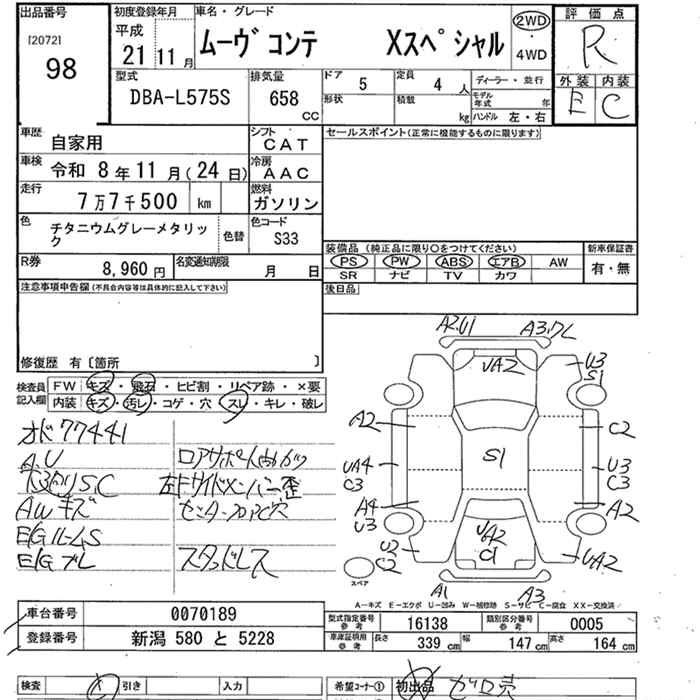 出品番号
[2072]
98
初度登録年月
平成
21 11月
車名・グレード
ムーヴコンテ Xスペシャル
2WD
・
4WD
評価点
R
外装 内装
E C
型式
DBA-L575S
排気量
658
CC
ドア
5
定員
4 人
形状
積載
kg
ディーラー・並行
モデル年式 年
ハンドル 左・右
車歴
自家用
シフト
CAT
車検
令和 8年 11月(24日)
冷房
AAC
走行
7万7千500 km
燃料
ガソリン
色
チタニウムグレーメタリック
色替
色コード
S33
R券
8,960円
名変通知期限
月 日
セールスポイント(正常に機能するものに限ります)
装備品 (純正品に限り○をつけてください)
PS PW ABS エアB AW
SR ナビ TV カワ
新車保証書
有・無
後日品
注意事項申告欄(不具合内容等は具体的に記入して下さい)
修復歴 有〔箇所 〕
検査員記入欄
FW キズ・飛石・ヒビ割・リペア跡・×要
内装 キズ・汚レ・コゲ・穴・スレ・キレ・破レ
オド77441
A.U
AWキズ
E/Gルーム S
E/Gブレ
左Fサイドメンバー歪
スタッドレス
A2.U1
A3.ワレ
UA2
U3
S1
A2
C2
S1
UA4
C3
U3
C3
A4
U3
A2
U2
C2
UA2
C1
UA2
A1
A3
スペア
A-キズ E-エクボ U-凹み W-補修跡 S-サビ C-腐食 XX-交換済
車台番号
0070189
登録番号
新潟 580 と 5228
型式指定番号
参考
16138
類別区分番号
参考
0005
車庫証明用
参考
長さ
339 cm
幅
147 cm
高さ
164 cm
検査
引き
入力
希望コーナー①
初出品